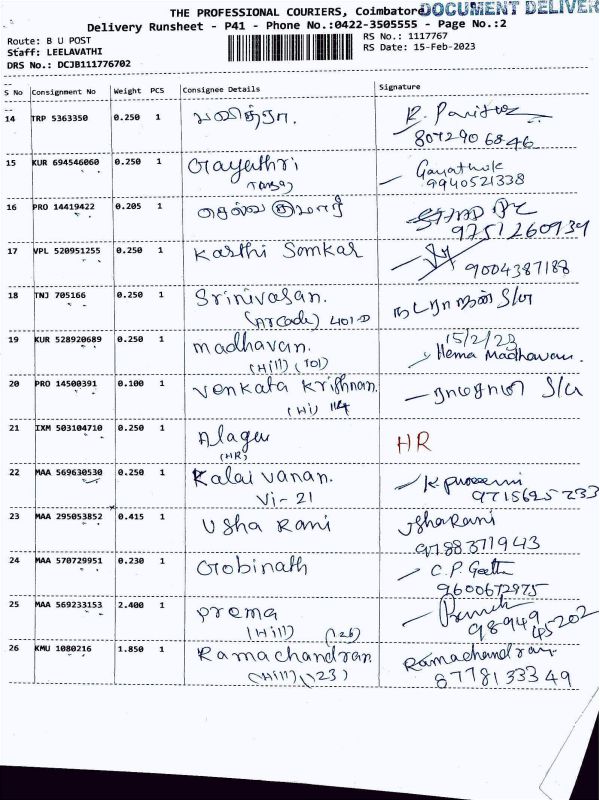 THE PROFESSIONAL COURIERS, Coimbatore DOCUMENT DELIVER
Delivery Runsheet - P41 - Phone No.:0422-3505555 - Page No.:2
Route: B U POST RS No.: 1117767
Staff: LEELAVATHI RS Date: 15-Feb-2023
DRS No.: DCJB111776702
S No Consignment No Weight PCS Consignee Details Signature
14 TRP 5363350 0.250 1 பவித்ரா. R. Pavithra
8072906846
15 KUR 694546060 0.250 1 Gayathri Gayathri
9940521338
16 PRO 14419422 0.205 1 செல்வ குமார்
9751260934
17 VPL 520951255 0.250 1 Karthi Somkar
9004387188
18 TNJ 705166 0.250 1 Srinivasan. நடராஜன் S/o
(Arcade) 401-D
19 KUR 528920689 0.250 1 madhavan. 15/2/23
(Hill) (101) Hema Madhavan.
20 PRO 14500391 0.100 1 Venkata Krishnan.
(Hi) 114
21 IXM 503104710 0.250 1 Alagu HR
(HR)
22 MAA 569630530 0.250 1 Kalai vanan.
Vi-21 9715625233
23 MAA 295053852 0.415 1 Usha Rani UshaRani
9788371943
24 MAA 570729951 0.230 1 Gobinath C.P. Geetha
9600672975
25 MAA 569233153 2.400 1 prema
(Hill) (126) 98949 45202
26 KMU 1080216 1.850 1 Ramachandran. Ramachandran
(Hill) (123) 8778133349